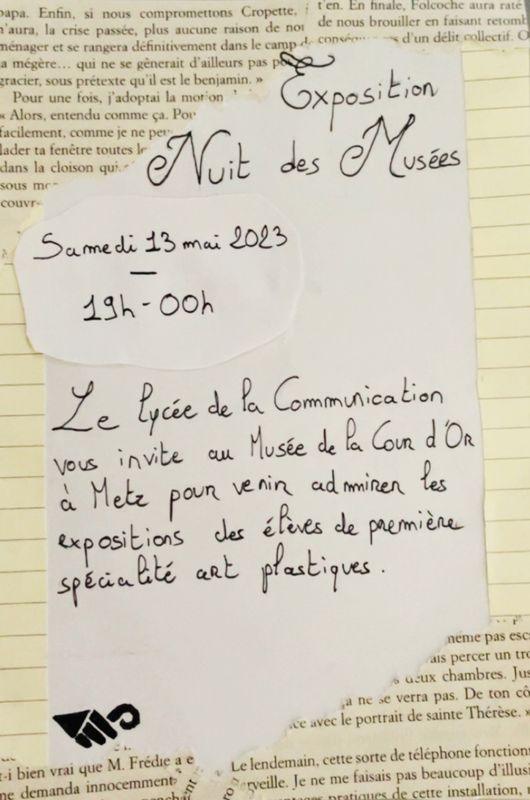 papa. Enfin, si nous compromettons Cropette,
n'aura, la crise passée, plus aucune raison de nou
ménager et se rangera définitivement dans le camp d
a mégère... qui ne se gênerait d'ailleurs pas
gracier, sous prétexte qu'il est le benjamin. »
Pour une fois, j'adoptai la motion
« Alors, entendu comme ça. Pou
facilement, comme je ne peu
lader ta fenêtre toutes le
dans la cloison qui
sous
couvr
t'en. En finale, Folcoche aura raté
de nous brouiller en faisant retomb
d'un délit collectif. O
Exposition
Nuit des Musées
Samedi 13 mai 2023
—
19h - 00h
Le lycée de la Communication
vous invite au Musée de la Cour d'Or
à Metz pour venir admirer les
expositions des élèves de première
spécialité art plastiques.
même pas esc
ais percer un tro
deux chambres. Jus
a ne se verra pas. De ton cô
ce avec le portrait de sainte Thérèse. »
t-i bien vrai que M. Frédie a e
ne demanda innocemment
Le lendemain, cette sorte de téléphone fonction
rveille. Je ne me faisais pas beaucoup d'illusi
pratiques de cette installation,